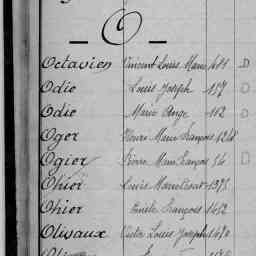 — O —
Octavien Vincent Louis Marie 481 D
Odic Louis Joseph 157 D
Odic Marie Ange 112 D
Oger Pierre Marie François 1268
Ogier Pierre Marie François 54 D
Ohier Louis Marie Cesar 1375
Ohier Emile François 1452
Olivaux Victor Louis Joseph 1470